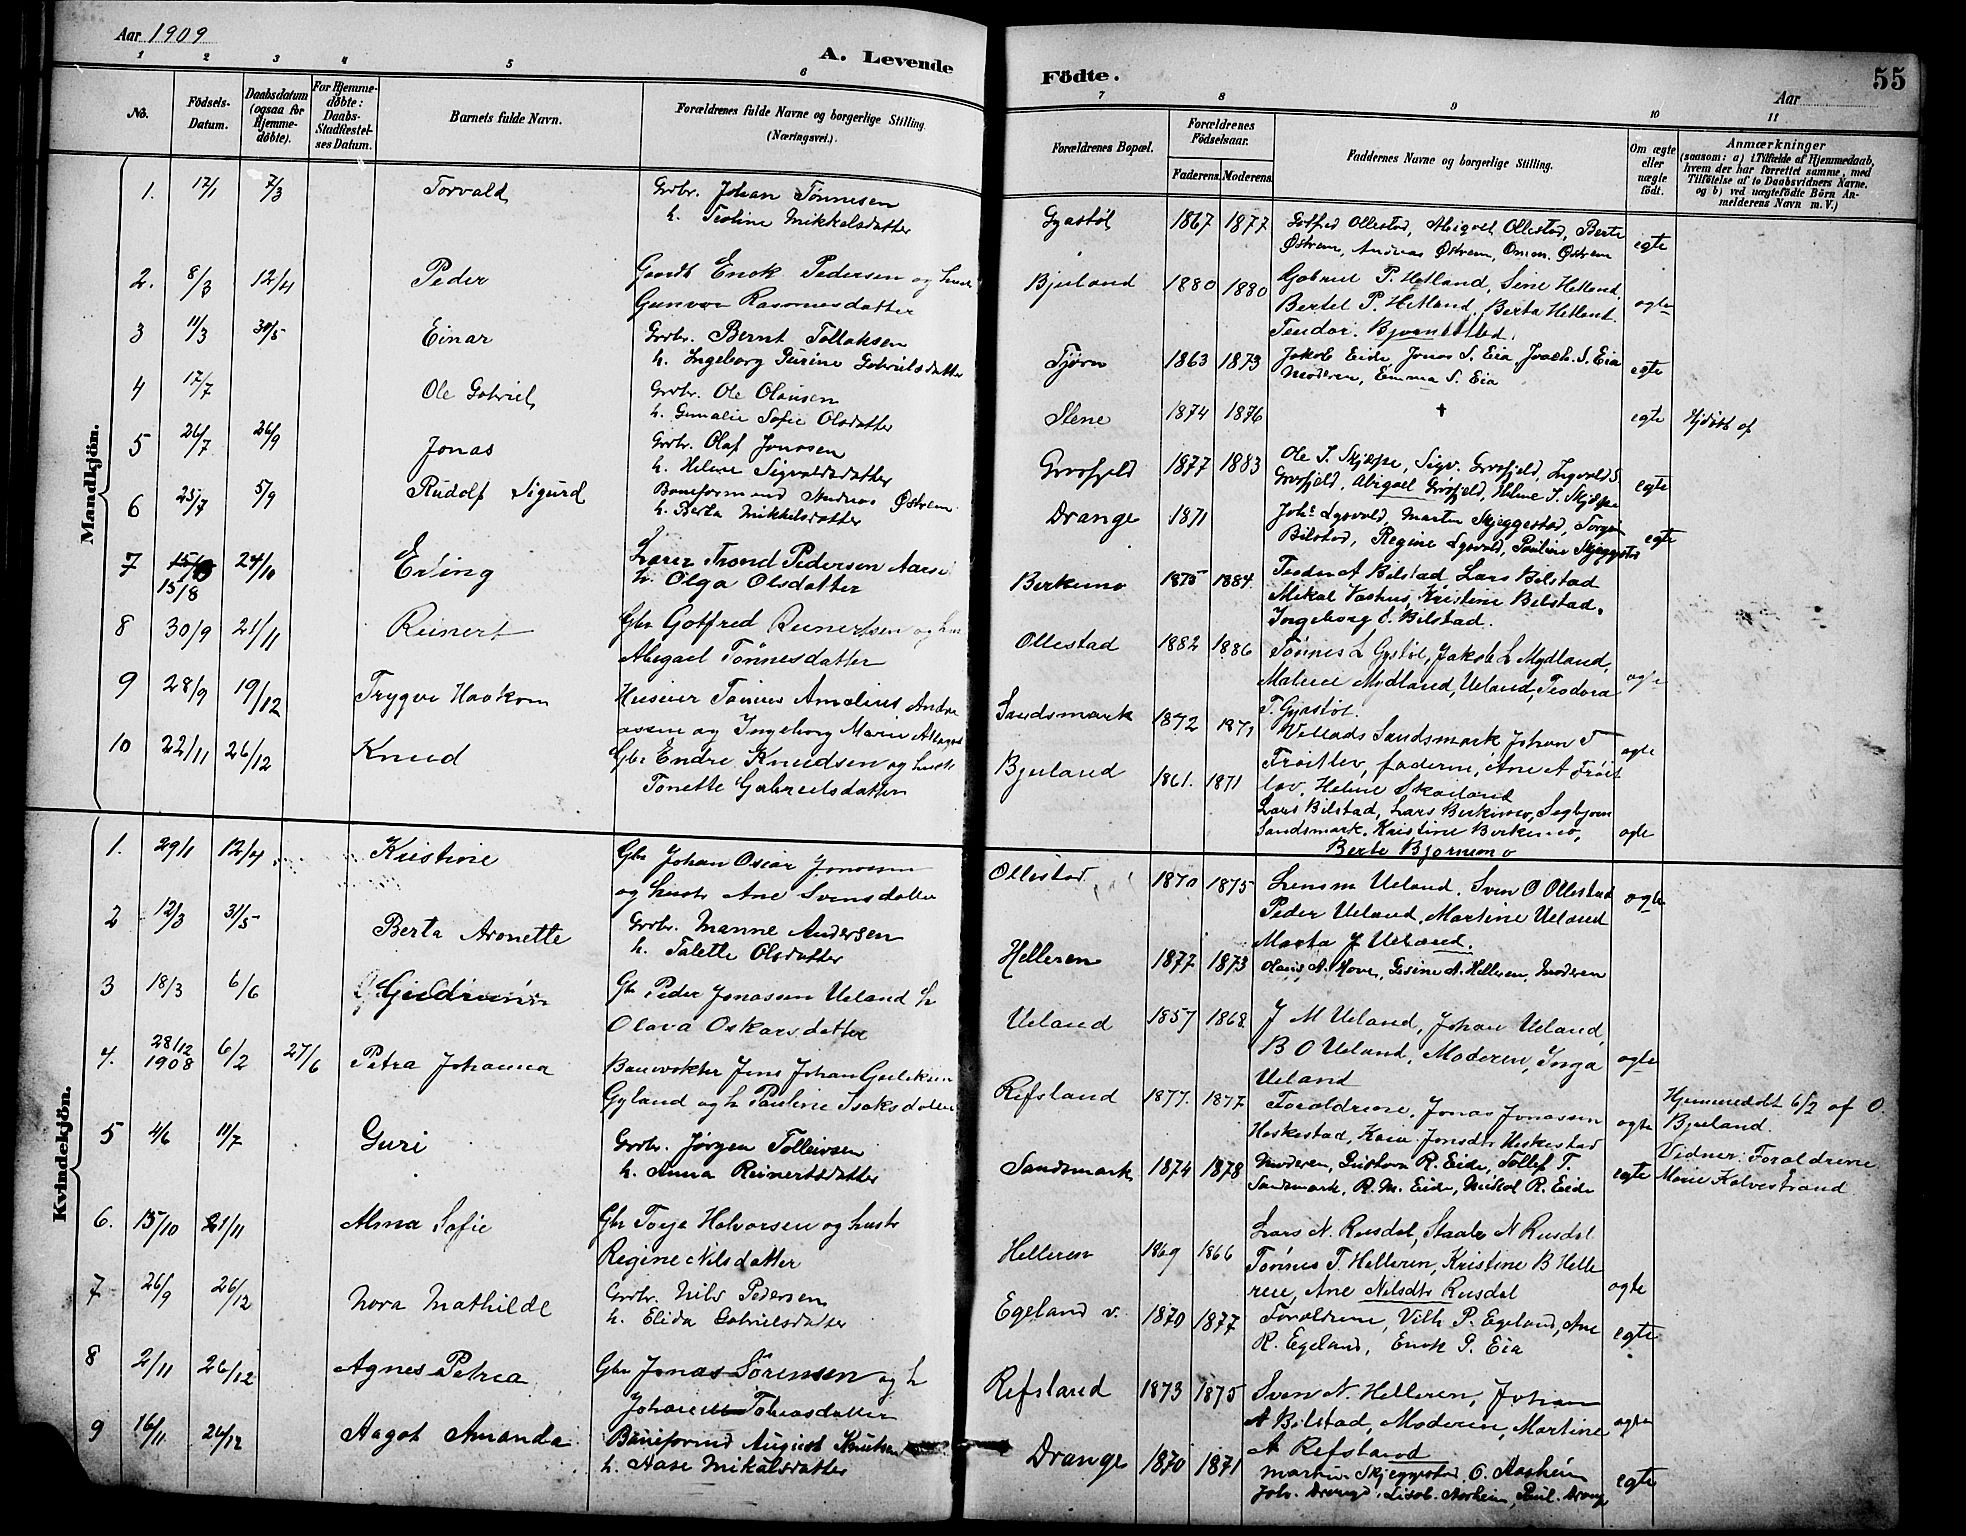 Aar 1909
A. Levende
1 2 3 4 5 6
No. Födsels-Datum. Daabsdatum (ogsaa for Hjemmedøbte). For Hjemmedøbte: Daabs-Stadfæstelses Datum. Barnets fulde Navn. Forældrenes fulde Navne og borgerlige Stilling. (Næringsvei.)
Mandkjön.
1. 17/1 7/3 Torvald Grbr. Johan Tønnesen
h. Teoline Mikkelsdatter
2. 8/3 12/4 Peder Gaardb Enok Pedersen og hust
Gunvor Rasmusdatter
3 11/3 30/5 Einar Grbr. Bernt Tollaksen
h. Ingeborg Gurine Gabrielsdatter
4 17/7 Ole Gabriel Grbr. Ole Olausen
h. Gunalie Sofie Olsdatter
5 26/7 26/9 Jonas Grbr. Olaf Jonasen
h. Helene Sigvaldsdatter
6 25/7 5/9 Rudolf Sigurd Baneformand Andreas Østrem
h. Berta Mikkelsdatter
7 15/8 24/10 Erling Lærer Trond Pedersen Aarse
h. Olga Olsdatter
8 30/9 21/11 Reinert Gbr Gotfred Reinertsen og hu
Abigael Tönnesdatter
9 28/9 19/12 Trygve Haakon Huseier Tönnes Amelius Andre
assen og Ingeborg Marie
10 22/11 26/12 Knud Gbr Endre Knudsen og hust
Tonette Gabrielsdatter
Kvindekjön.
1. 29/1 12/4 Kristine Gbr Johan Oscar Jonassen
og hust Ane Svensdatter
2 12/3 31/5 Berta Aronette Grbr. Manne Andersen
h. Talette Olsdatter
3 18/3 6/6 Gudrun Gbr Peder Jonassen Ueland h
Olava Oskarsdatter
4. 28/12 1908 6/2 27/6 Petra Johanna Banevokter Jens Johan Gulaksen
Gyland og h Pauline Isaksdatter
5 4/6 11/7 Guri Grbr. Jörgen Tolleivsen
h. Anna Reinertsdatter
6. 15/10 21/11 Alma Sofie Gbr Torje Halvorsen og hustr
Regine Nilsdatter
7 26/9 26/12 Nora Mathilde Grbr. Nils Pedersen
h. Elida Gabrielsdatter
8 2/11 26/12 Agnes Petrea Gbr Jonas Sörensen og h
Johanne Tobiasdatter
9 16/11 26/12 Aagot Amanda Baneformd August Knutsen
h. Aase Mikalsdatter
Födte.
55
Aar
7 8 9 10 11
Forældrenes Bopæl. Forældrenes Födselsaar. Faderens. Moderens. Faddernes Navne og borgerlige Stilling. Om ægte eller uægte födt. Anmærkninger (saasom: a) i Tilfælde af Hjemmedaab, hvem der har forrettet samme, med Tilföielse af to Daabsvidners Navne. og b) ved uægtefödte Börn Anmelderens Navn m. V.)
Gyastöl 1867 1877 Gotfred Ollestad, Abigael Ollestad, Berte
Østrem, Andreas Østrem, Omon. Østrem egte
Bjuland 1880 1880 Gabriel P. Hetland, Sine Hetland,
Bertel P. Hetland, Berta Hetland. ægte
Teodor. Bjørnestad.
Tjörn 1863 1873 Jakob Eide, Jonas S. Eia, Joach. S. Eia
Moderen, Emma S. Eia egte
Slene 1874 1876 † egte Hjdöbt af
Grösfjeld 1877 1883 Ole I. Skjæpe, Sigv. Grösfjeld, Ingvald S.
Grösfjeld, Abigael Grösfjeld, Helene I. Skjæpe egte
Drange 1871 Johs Lysvold, Martin Skjeggestad, Torger
Bilstad, Regine Lysvold, Pauline Skjeggestad egte
Berkemo 1875 1884. Teodor A Bilstad Lars Bilstad
Mikal Vashus, Kristine Bilstad,
Ingeborg O. Bilstad.
Ollestad 1882 1886 Tønnes L Gystöl, Jakob L Mydland,
Malene Mydland, Ueland, Teodora ægte
T. Gyastöl.
Sandsmark 1872 1871 Villads Sandsmark Johan T
Fröitlov, faderne, Ane A Fröit ægte
lov, Helene Skailand
Bjuland 1861. 1871 Lars Bilstad, Lars Berkemo, Segbjorn
Sandsmark, Kristine Berkemo, ægte
Berte Bjornemo
Ollestad 1870 1875 Lensm Ueland. Sven O Ollestad ægte
Peder Ueland, Martine Ueland
Marta J Ueland.
Helleren 1877 1873 Olaus A. Move, Gesine A. Helleren, Moderen
Ueland 1857 1868 J M Ueland, Johan Ueland,
B O Ueland, Moderen, Inga ægte
Ueland
Refsland 1877. 1877 Foraldrene, Jonas Jonassen
Heskestad, Kaia Jonsdtr Heskestad ægte Hjemmedöbt 6/2 af O.
Bjuland.
Vidner: Foraldrene
Marie Kalvestrand
Sandsmark 1874 1878 Moderen, Gustava R. Eide, Tollef T.
Sandsmark, R. M. Eide, Mikal R. Eide egte
Helleren 1869 1866 Lars N. Rusdal, Staale N Rusdal
Tønnes T. Helleren, Kristine B Helle
ren, Ane Nilsdtr Rusdal ægte
Egeland v. 1870 1877 Foraldrene, Vilh P. Egeland, Ane
R. Egeland, Enok P. Eia egte
Refsland 1873 1875 Sven N. Helleren, Johan
A Bilstad, Moderen, Martine ægte
A Refsland
Drange 1870 1871 Martin Skjeggestad O. Aasheim
Joh. Drange, Lisab. Aasheim, Paul. Drange egte